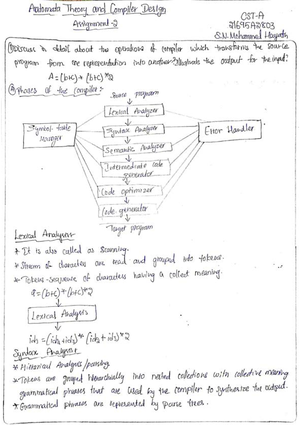 Automata Theory and Compiler Design
Assignment-2
CST-A
21695A2803
S.N. Mohammad
① Discuss in detail about the operations of compiler which transforms the source
program from one representation into another? Illustrate the output for the input:
A = (b+c) * (b+c) * 2
Phases of the compiler:-
Source program
Lexical Analyzer
Syntax Analyzer
Semantic Analyzer
Intermediate code
generator
Code optimizer
Code generator
Target program
Symbol table
manager
Error Handler
Lexical Analysis:-
* It is also called as scanning.
* Stream of characters are read and grouped into tokens.
* Tokens - sequence of characters having a collect meaning.
a = (b+c) * (b+c) * 2
Lexical Analysis
id1 = (id2 + id3) * (id2 + id3) * 2
Syntax Analysis:-
* Hierarical Analysis/parsing.
* Tokens are grouped hierarchically into nested collections with collective meaning
grammatical phrases that are used by the compiler to synthesize the output.
* Grammatical phrases are represented by parse trees.